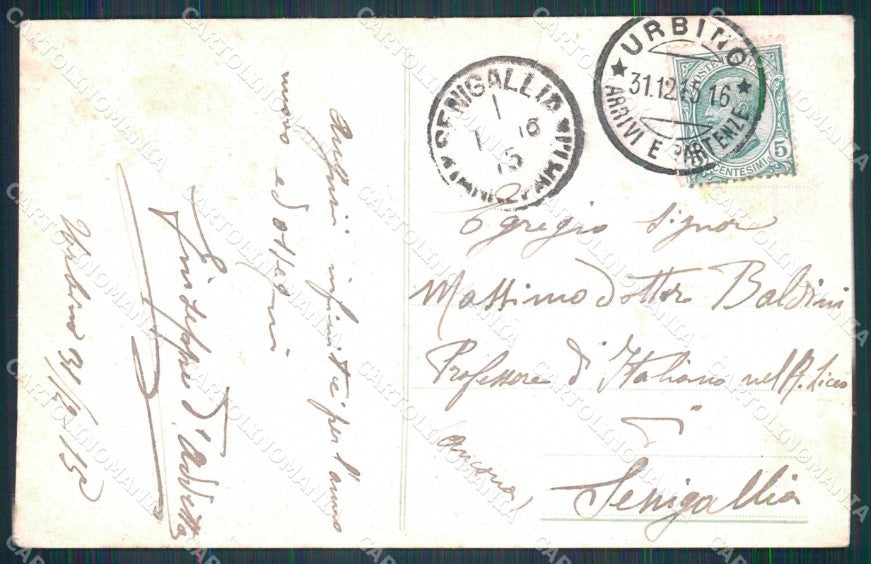 Auguri infiniti per l'anno
nuovo ed ossequi
Giuseppe d'
Urbino 31/12/15
SENIGALLIA
1
16
15
URBINO
31.12.15 16
ARRIVI E PARTENZE
5
CENTESIMI
Egregio Signor
Massimo Dottor Baldini
Professore d'Italiano nel R. Liceo
(Ancona)
Senigallia
CARTOLINOMANIA